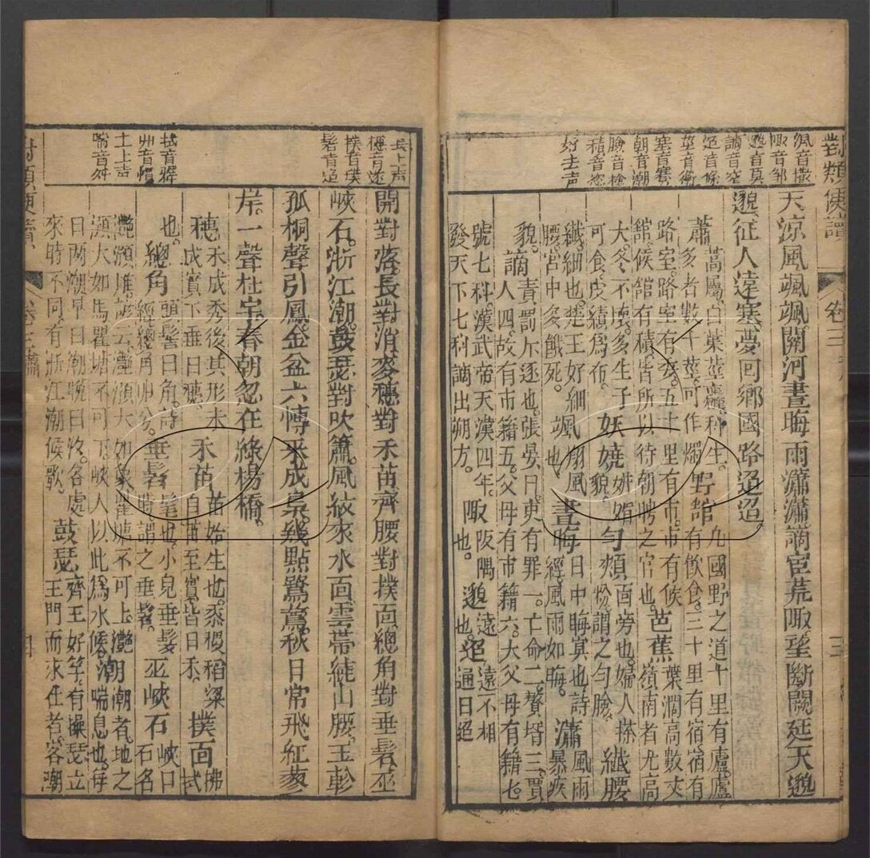 對類便讀
卷三
三
颯音撒
陬音鄒
邈音莫
謫音空
迢音條
莖音衡
塞音賽
朝音潮
臉音檢
積音恣
好去声
天涼風颯颯關河晝晦雨瀟瀟謫宦荒陬望斷闕廷天邈
邈征人遠塞夢回鄉國路迢迢
蕭 蒿屬白葉莖麤科生
多者數千莖可作燭 野館 九國野之道十里有廬廬
有飲食三十里有宿宿有
路室路室有委五十里有市市有候
館候館有積皆所以待朝聘之官也 芭蕉 葉濶高數丈
嶺南者尤高
大冬不凋多生子
可食皮績為布 妖嬈 妍媚
貌 勻頰 面旁也婦人搽
粉謂之勻臉 纖腰
纖細也楚王好細
腰宮中多餓死 颯 翔風
也 晝晦 日中晦冥也詩
經風雨如晦 瀟 風雨
暴疾
貌 謫 責罰斥逐也張晏曰吏有罪一亡命二贅壻三賈
人四故有市籍五父母有市籍六大父母有籍七
號七科漢武帝天漢四年
發天下七科謫出朔方 陬 阪隅
也 邈 遠
也 迢 遠不相
過曰迢
長上声
穗音遂
撲音璞
髫音迢
拭音釋
丱音慣
上上声
喘音舛
開對落長對消麥穗對禾苗齊腰對撲面總角對垂髫巫
峽石浙江潮鼓瑟對吹簫風紋來水面雲帶繞山腰玉軫
孤桐聲引鳳金盆六博采成梟幾點鷺鷥秋日常飛紅蓼
岸一聲杜宇春朝忽在綠楊橋
穗 禾成秀後其形末
成實下垂曰穗 禾苗 苗始生也黍稷稻粱
自苗至實皆曰禾 撲面 拂
拭
也 總角 頭髻曰角詩
經總角丱兮 垂髫 髦也小兒垂髮
時謂之垂髫 巫峽石 峽口
石名
灔澦堆諺云灔澦大如象瞿塘不可上灔
澦大如馬瞿塘不可下峽人以此為水候 潮 潮者地之
喘息也每
日兩潮早曰潮晚曰汐各處
來時不同有浙江潮候歌 鼓瑟 齊王好竽有操瑟立
王門而求仕者客潮
對類便讀
卷三蕭
四